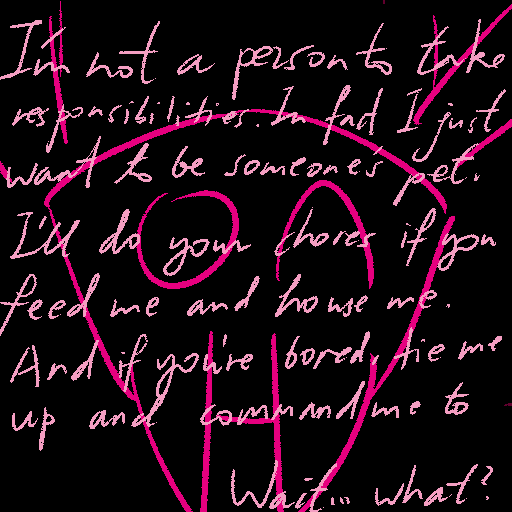 I'm not a person to take
responsibilities. In fact I just
want to be someone's pet.
I'll do your chores if you
feed me and house me.
And if you're bored, tie me
up and command me to
Wait... what?